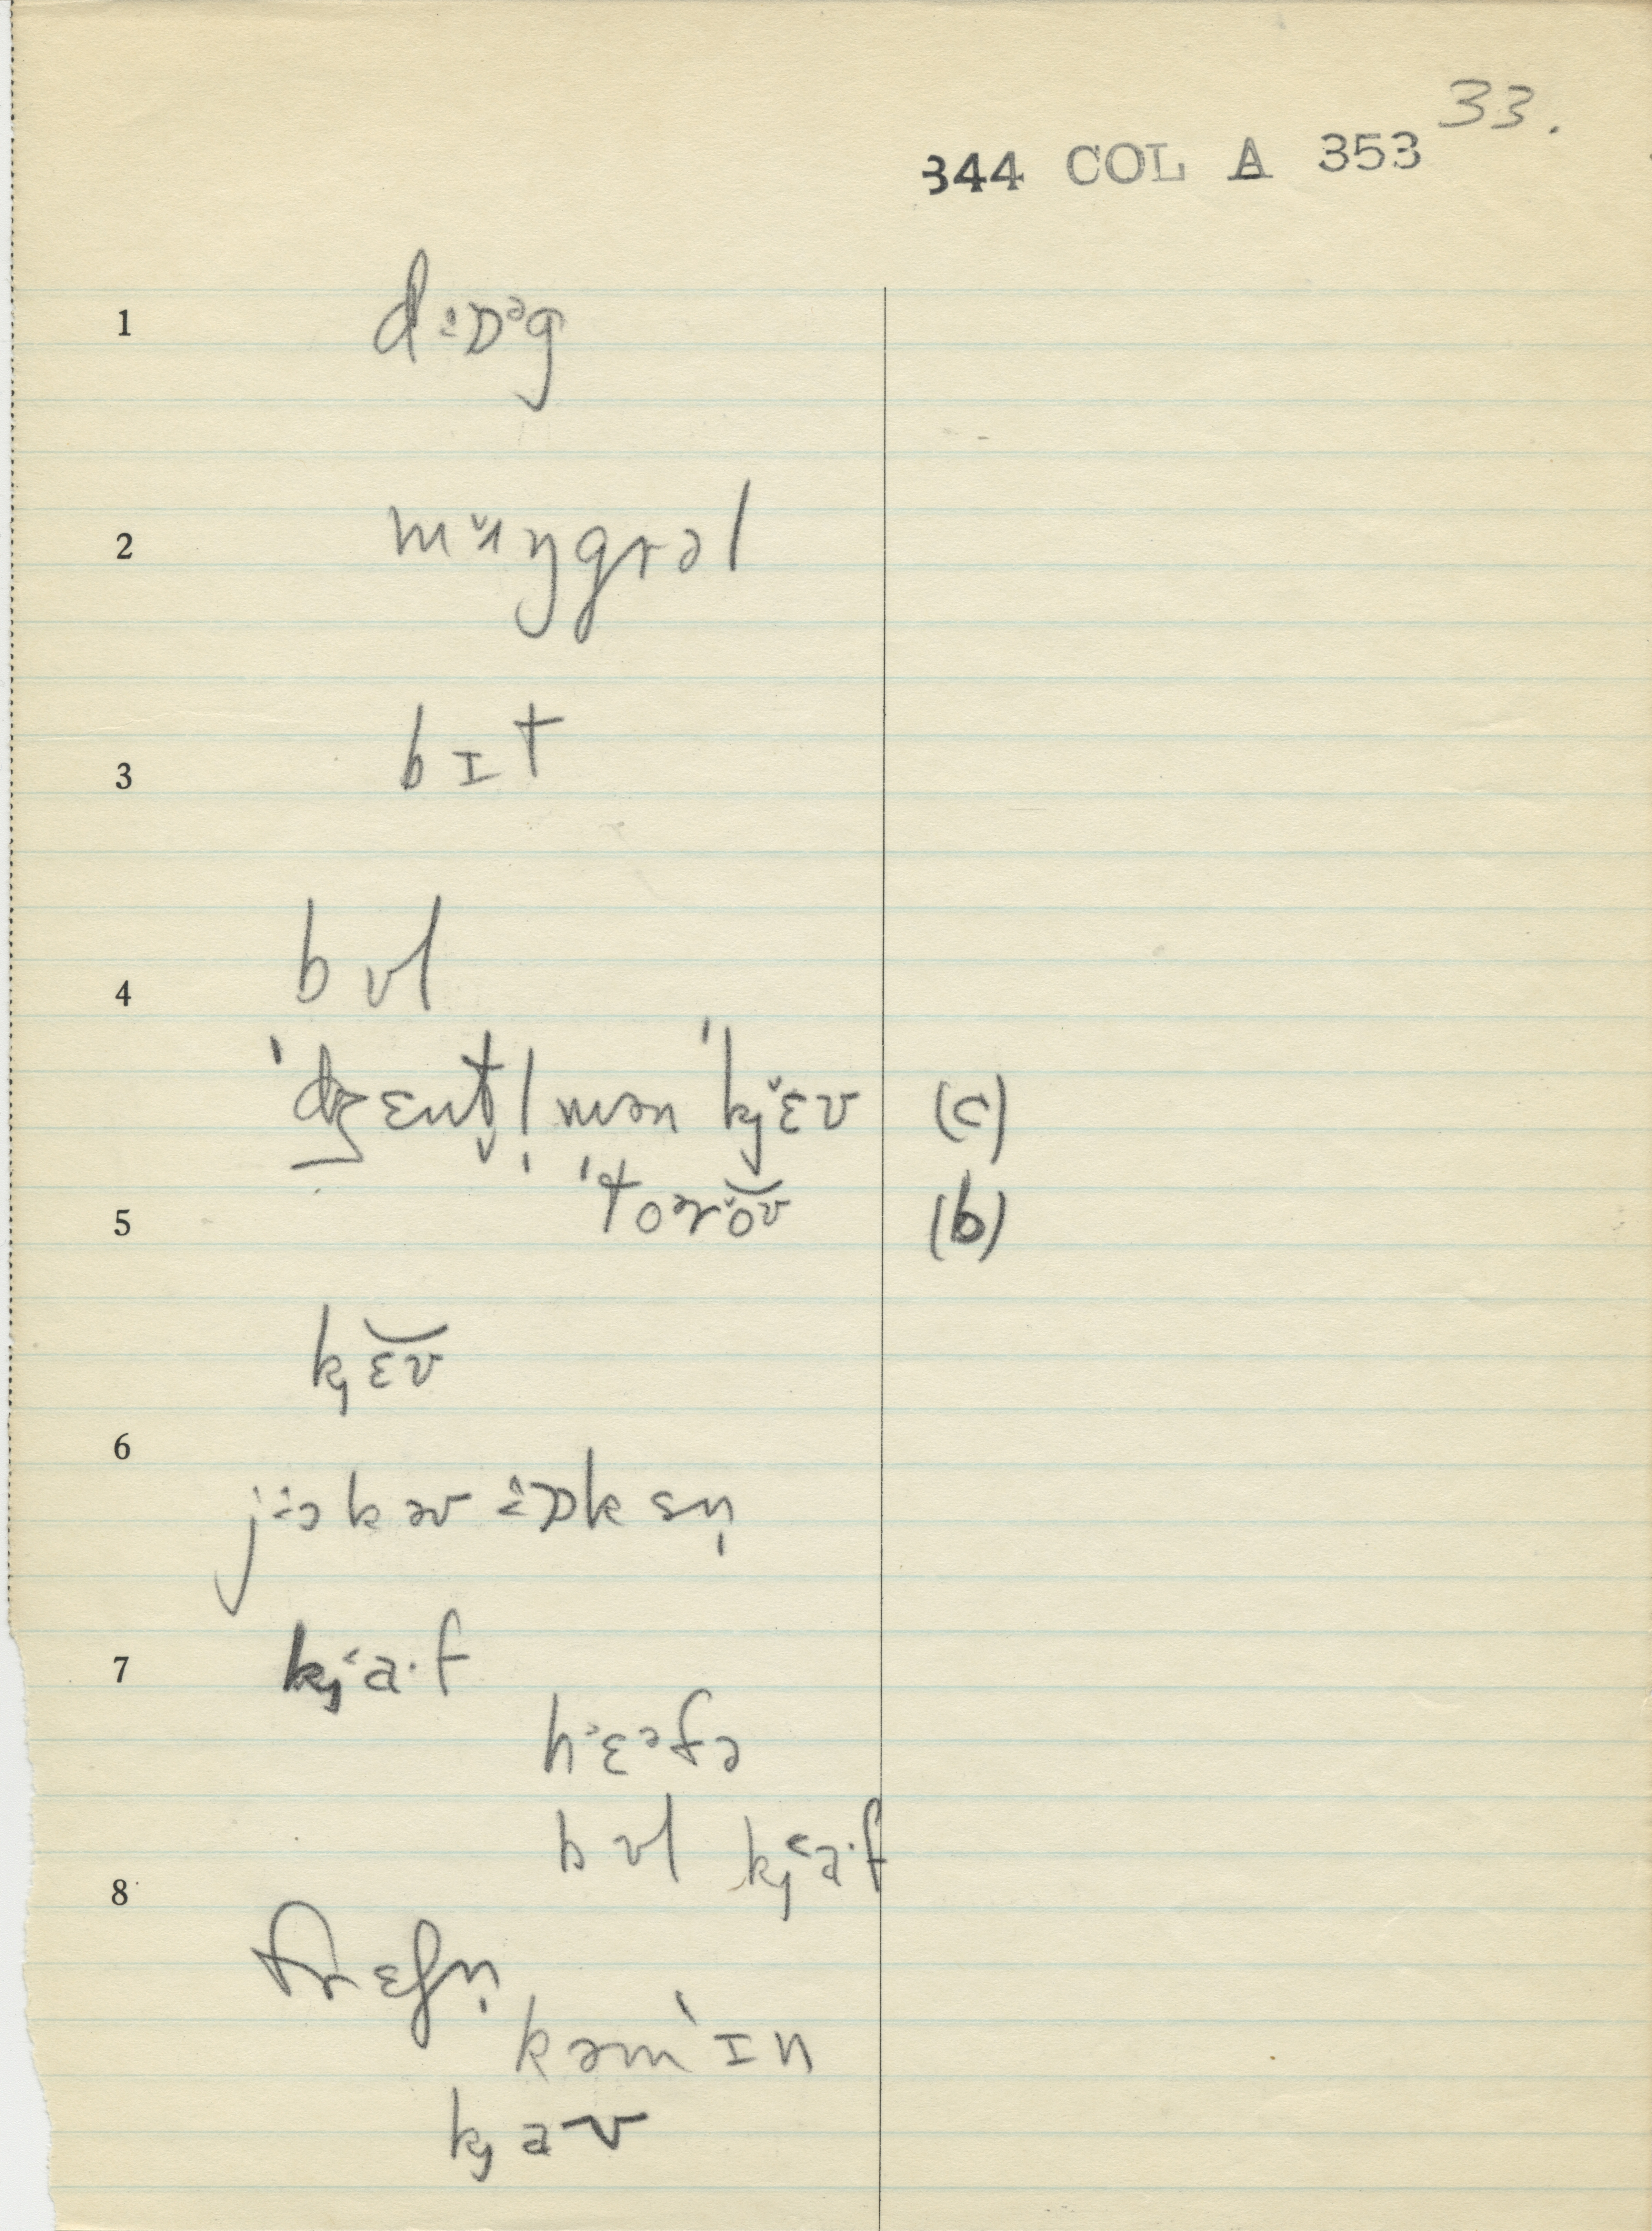 33.
344 COL A 353
1 dːɒᵊg
2 mʌ̆ŋgrəl
3 bɪt
4 bʊl
ˈdʒɛnt̬l̩mən ˈkj ɛ̆ʊ (c)
5 ˈtoɚŏ͝ʊ (b)
kj ɛ͝ʊ
6
jːɔk əʊ ːɒksn̩
7 kj˂a·f
hːɛᵊfə
bʊl kj˂a·f
8
frɛʃn̩
kəmˈɪn
kj aʊ